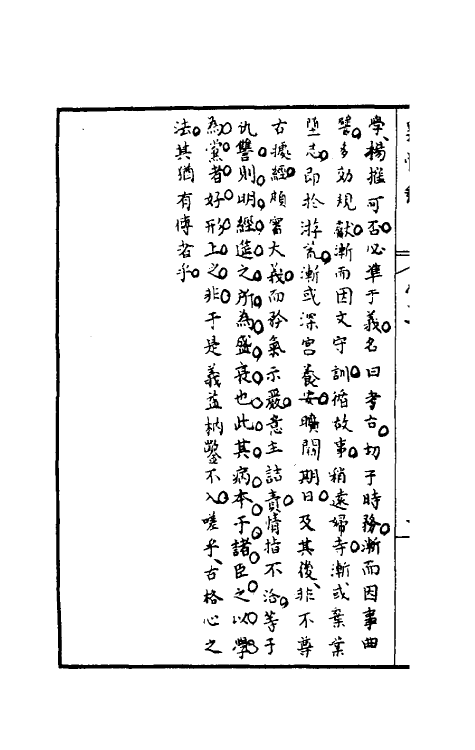 學楊搉可否必準于義名曰考古切于時務漸而因事曲
譬多効規獻漸而因文守訓循故事稍遠婦寺漸或棄業
堕志即於游荒漸或深宮養安曠閑期日及其後非不尊
古據經頗害大義而矜氣示嚴意主詰責情指不洽等于
仇讐則明經筵之所為盛衰也此其病本于諸臣之以學
為黨者好形上之非于是義益枘鑿不入嗟乎古格心之
法其猶有傅者乎